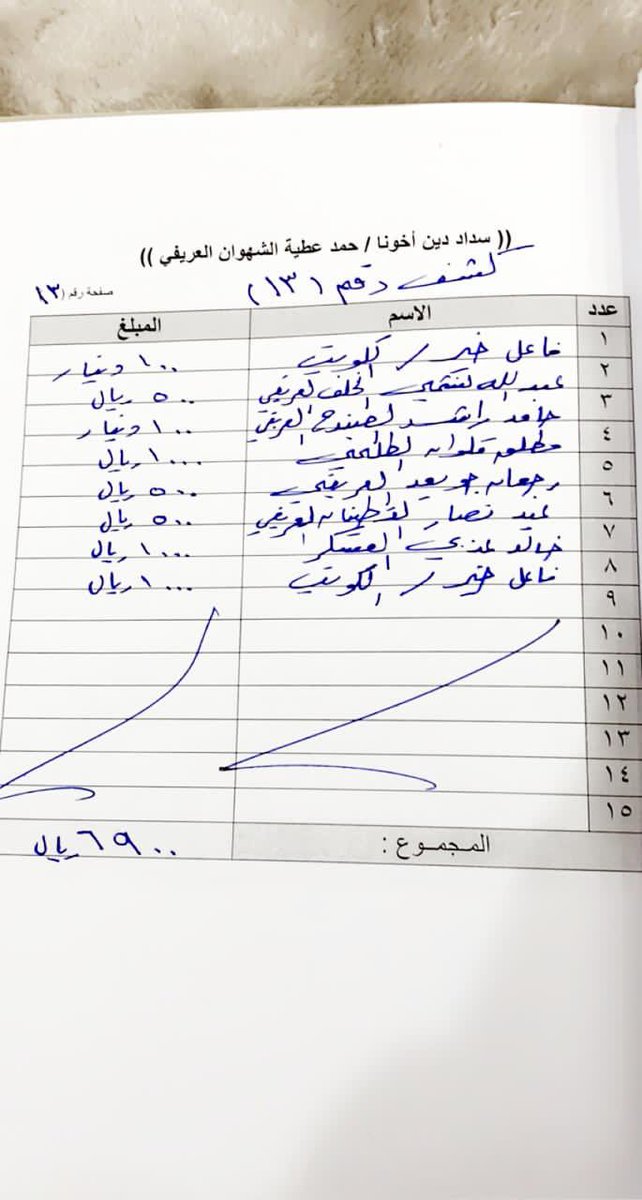 (( سداد دين أخونا / حمد عطية الشهوان العريفي ))
كشف رقم (١٣)
صفحة رقم (١٣
عدد الاسم المبلغ
١ فاعل خير / الكويت ١٠٠ دينار
٢ عبدالله الخلف العريفي ٥٠٠ ريال
٣ حامد راشد العريفي ١٠٠ دينار
٤ مطلق ١٠٠٠ ريال
٥ العريفي ٥٠٠ ريال
٦ عيد نصار العريفي ٥٠٠ ريال
٧ خالد العسكر ١٠٠٠ ريال
٨ فاعل خير / الكويت ١٠٠٠ ريال
٩
١٠
١١
١٢
١٣
١٤
١٥
المجموع : ٦٩٠٠ ريال